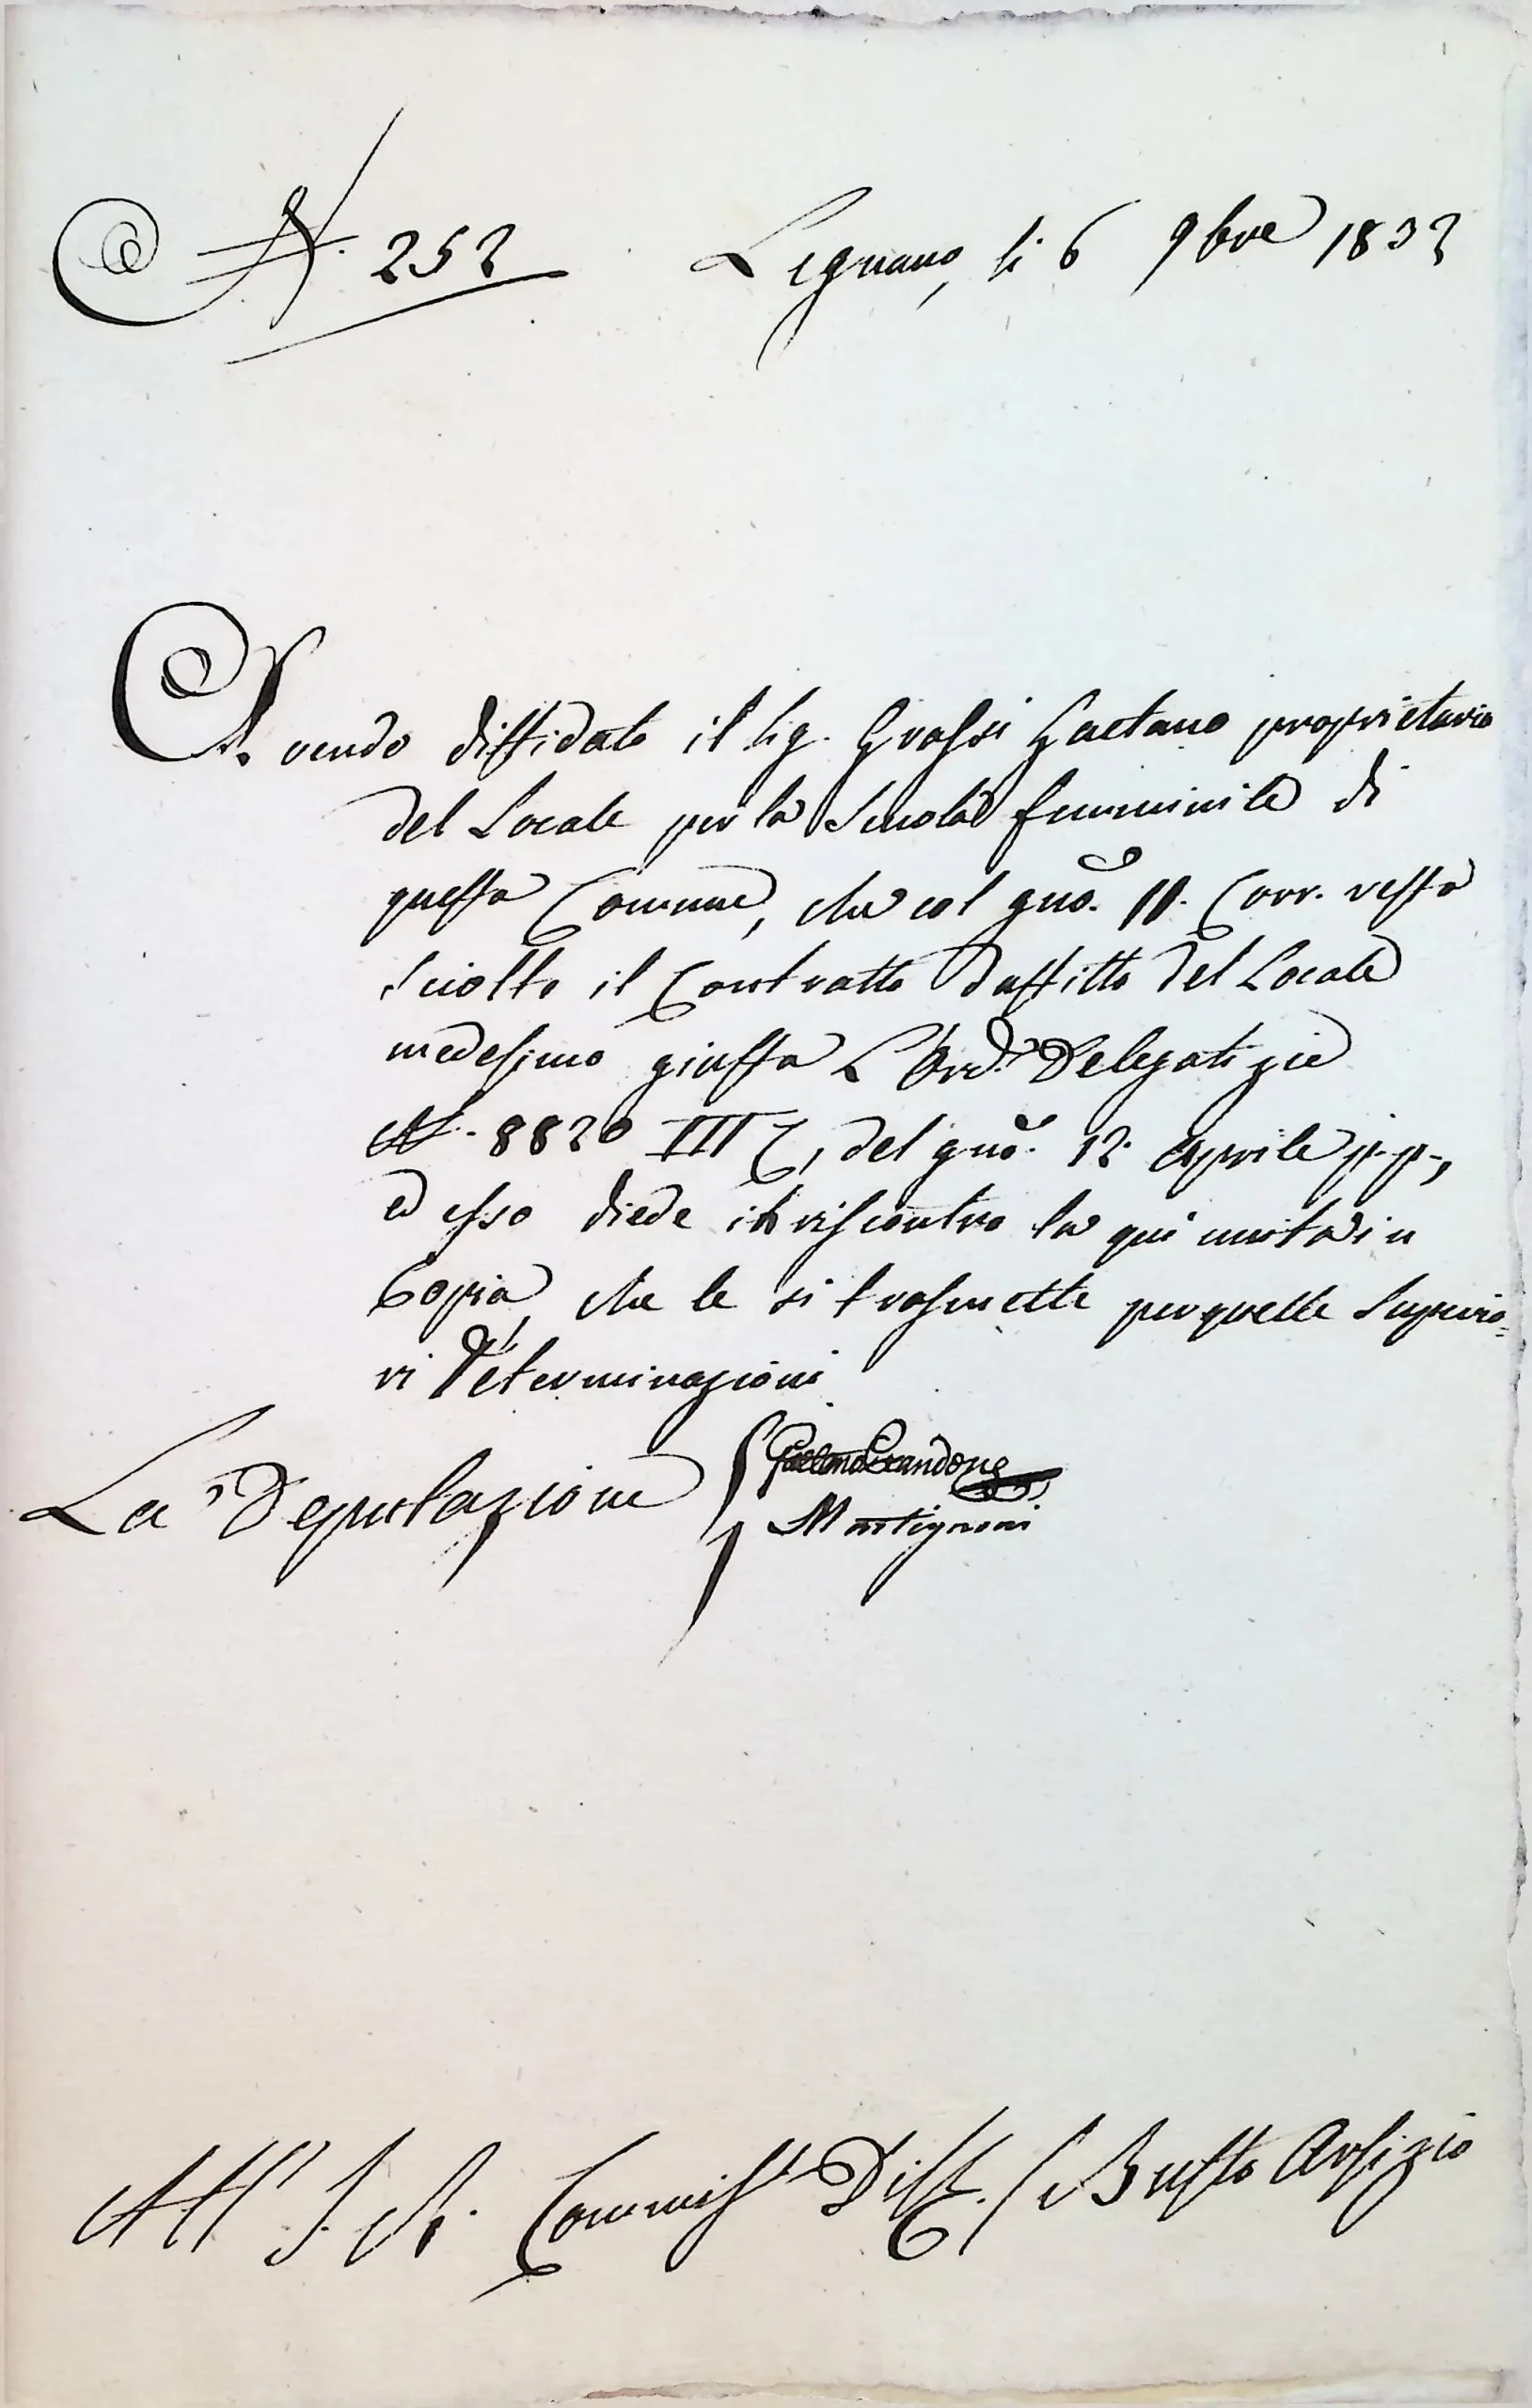 N. 252 Legnano, li 6 9bre 1832
Avendo diffidato il Sig. Grassi Gaetano proprietario
del Locale per la Scuola femminile di
questa Comune, che col gno. 11. Corr. resta
sciolto il Contratto d'affitto del Locale
medesimo giusta L'Ord.a Delegatizie
N. 8820 III C, del gno. 12. Aprile p. p.,
ed esso diede il riscontro la qui unita in
Copia, che le si trasmette per quelle Superio=
ri Determinazioni
La Deputazione
Martignoni
All' I. R. Commiss. Dist. / Busto Arsizio